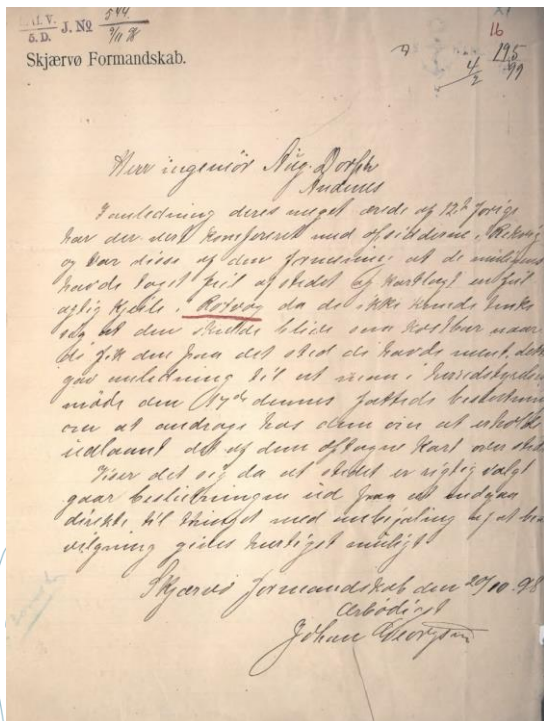 5.D. J. № 544
9/11 98
Skjærvø Formandskab.
16
195
4/2 99
Herr ingeniør Aug. Dorph
Andenes
I anledning deres meget ærede af 12te forige
har der vert konfereret med opsidderne i Rekvig
og var disse af den formening at de muligens
havde taget feil af stedet og kartlagt en feil
agtig kjeile i Rotvåg da de ikke kunde tenke
sig at den skulde blive saa kostbar naar
de fik den paa det sted de havde ment, dette
gav anledning til at man i herredstyrelse
møde den 14de dennes fattede beslutning
om at andrage hos dem om at erholde
udlaant det af dem optagne kart over stedet
Viser det sig da at stedet er rigtig valgt
gaar beslutningen ud paa at indgaa
direkte til thinget med anbefaling af at be
vilgning gives hurtigst muligt
Skjærvø formandskab den 20/10 98
Ærbødigst
Johan